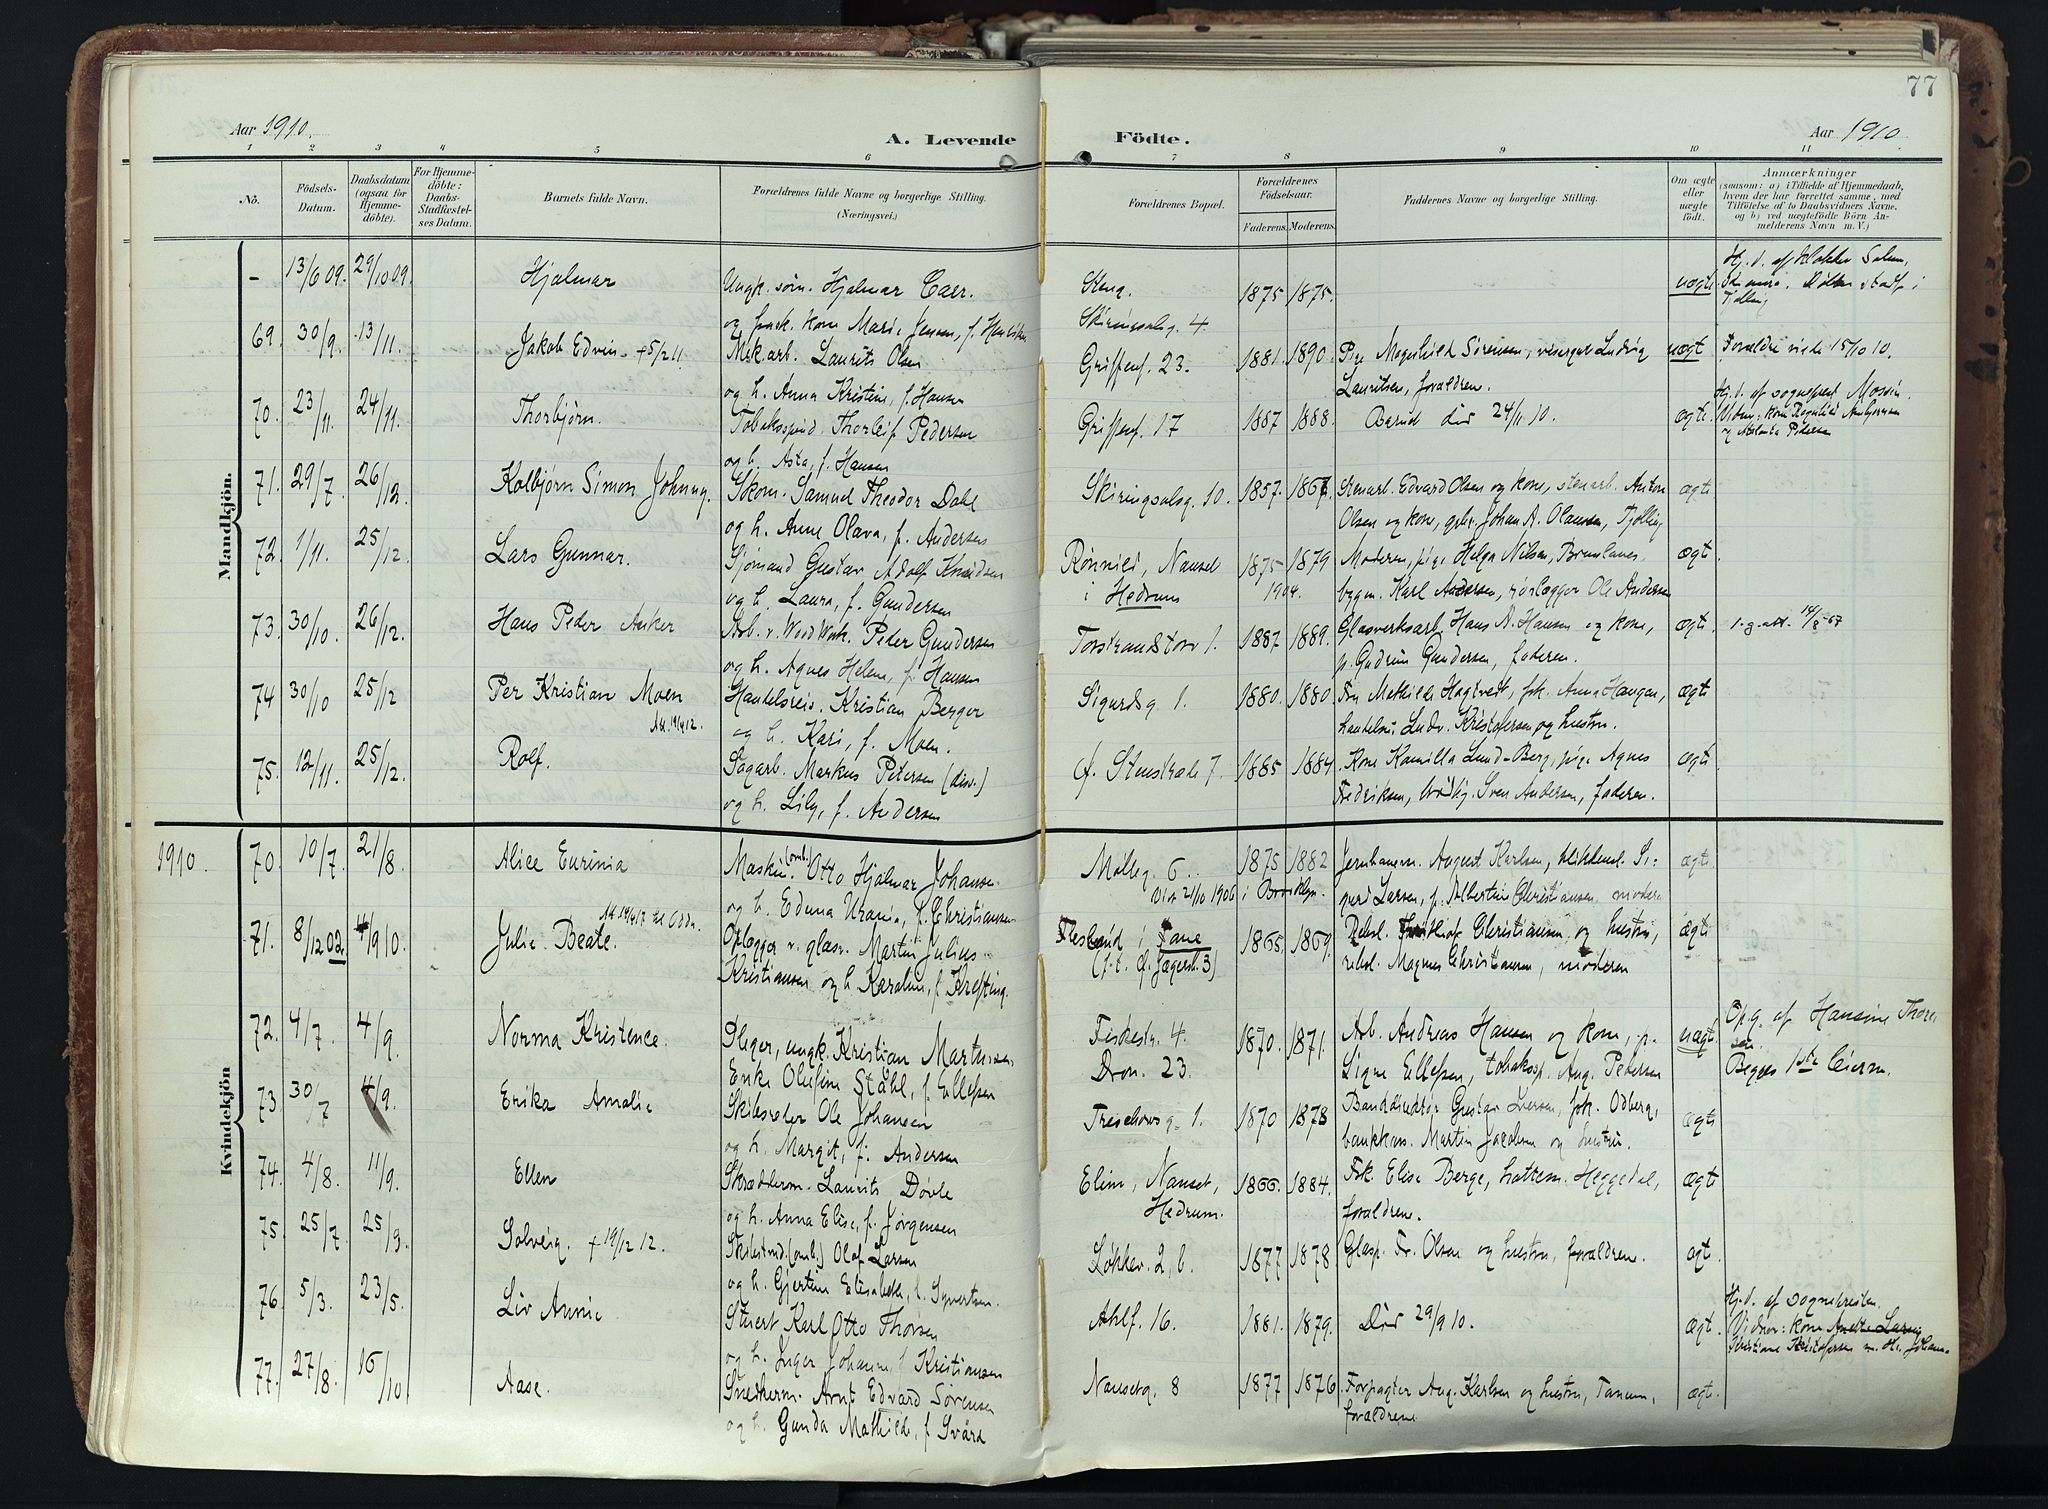 77
Aar 1910.
A. Levende
Födte.
Aar 1910.
1 2 3 4 5 6 7 8 9 10 11
No.
Födsels-
Datum.
Daabsdatum
(ogsaa for
Hjemme-
döbte).
For Hjemme-
döbte:
Daabs-
Stadfæstel-
ses Datum.
Barnets fulde Navn.
Forældrenes fulde Navne og borgerlige Stilling.
(Næringsvei.)
Forældrenes Bopæl.
Forældrenes
Födselsaar.
Faderens. Moderens.
Faddernes Navne og borgerlige Stilling.
Om ægte
eller
uægte
födt.
Anmærkninger
(saasom: a) i Tilfælde af Hjemmedaab,
hvem der har forrettet samme, med
Tilföielse af to Daabsvidners Navne.
og b) ved uægtefödte Börn An-
melderens Navn m. V.)
Mandkjön.
- 13/6 09. 29/10 09. Hjalmar
Ungk. søm. Hjalmar Carr.
og frask. kone Marie Jensen, f. Henriksen
Steng.
Skiringsalsg. 4
1875 1875.
uægte
Hj. d. af klokker
Tjølling
69. 30/9. 13/11. Jakob Edvin +5/2 11.
Mek.arb. Laurits Olsen
og h. Anna Kristine, f. Hansen
Griffenf. 23.
1881. 1890.
Pige Magnhild Sørensen, visergut Ludvig
Lauritsen, forældrene.
uægt
Forældre viede 15/10 10.
70. 23/11. 24/11. Thorbjørn.
Tobaksspind. Thorleif Pedersen
og h. Asta, f. Hansen
Griffenf. 17
1887 1888.
Barnet død 24/11 10.
ægte
Hj. d. af sogneprest
71. 29/7. 26/12. Kolbjørn Simon Johnny.
Skom. Samuel Theodor Dahl
og h. Anne Olava, f. Andersen
Skiringsalsg. 10.
1857. 1867.
Stenarb. Edvard Olsen og kone, stenarb. Anton
Olsen og kone, Johan A. Olaussen, Tjølling
ægte
72. 1/11. 25/12. Lars Gunnar.
Sjømand Gustav Adolf Knudsen
og h. Laura, f. Gundersen
Rønnild, Nanset
i Hedrum
1875 1879
1904.
Moderen, pige Helga Nilsen, Brunlanes
bygm. Karl Andersen, rørlægger Ole Andersen
ægte
73. 30/10. 26/12. Hans Peder Anker
Arb. v. Wood Work. Peder Gundersen
og h. Agnes Helene, f. Hansen
Torstrandstorv 1.
1887 1889.
Glasverksarb. Hans A. Hansen og kone,
p. Gudrun Gundersen, faderen.
ægte.
74 30/10 25/12 Per Kristian Moen
Att. 19/4 12.
Handelsreis. Kristian Berger
og h. Kari, f. Moen.
Sigurdsg. 1.
1880. 1880
Fru Mathilde Hagtvedt, frk. Anna Haugan,
handelsr. Ludv. Kristofersen og hustru.
ægte
75. 12/11. 25/12. Rolf.
Sagarb. Markus Petersen (diss.)
og h. Lily, f. Andersen
Ø. Stenstræde 7.
1885 1884.
Kone Kamilla Lund-Berg, pige Agnes
Fredriksen, Sven Andersen, faderen.
ægte
1910.
Kvindekjön
70. 10/7. 21/8. Alice Eurinia
Maskin. (omb.) Otto Hjalmar Johansen
og h. Edina Urania, f. Christiansen
Mølleg. 6
Viet 21/10 1906 i Brooklyn.
1875 1882
Jernbanem. August Karlsen, blikkensl. Si-
gurd Larsen, f. Albertine Christiansen, moderen
ægte
71. 8/12 02. 4/9 10. Julie Beate.
Att. 19/4 12 til Odda.
Oplegger v. glasv. Martin Julius
Kristiansen og h. Karoline, f. Krefting.
Flesland i Fane
(f. t. Ø. Jægerst. 3)
1865. 1869.
Rebsl. Thorleif Christiansen og hustru,
rebsl. Magnus Christiansen, moderen
ægte
72. 4/7. 4/9. Norma Kristence.
Pleger, ungk. Kristian Martinsen
Enke Olufine Ståhl, f. Ellefsen
Fiskestr. 4.
Dron. 23.
1870. 1871.
Arb. Andreas Hansen og kone, p.
Signe Ellefsen, tobaksp. Aug. Pedersen
uægt.
Opg. af Hansine Thore-
sen.
Begges 1ste leierm.
73. 30/7 4/9. Erika Amalie
Skibsreder Ole Johansen
og h. Margit, f. Andersen
Treschowsg. 1.
1870 1873
Bankdirektør Gustav Iversen, frk. Odberg,
bankkas. Martin Jacobsen og hustru.
ægte
74. 4/8. 11/9. Ellen
Skræderm. Laurits Døvle
og h. Anna Elise, f. Jørgensen
Elim, Nanset,
Hedrum.
1866. 1884.
Frk. Elise Berge, hattem. Heggedal,
forældrene.
ægte
75. 25/7. 25/9. Solveig. +19/12 12.
Skibstmd. (omb.) Olaf Larsen
og h. Gjertine Elisabeth, f. Syvertsen.
Løkkev. 2, b.
1877 1878
Glasp. Fr. Olsen og hustru, forældrene.
ægt.
76. 5/3. 23/5. Liv Annie
Stuert Karl Otto Thorsen
og h. Inger Johanne, f. Kristiansen
Ahlf. 16.
1881. 1879.
Død 29/9 10.
ægt.
Hj. d. af sognepresten.
Vidner: kone
77. 27/8. 16/10 Aase.
Snedkerm. Arnt Edvard Sørensen
og h. Gunda Mathilde, f. Svärd
Nansetg. 8
1877 1876.
Forpagter Aug. Karlsen og hustru, Tanum,
forældrene
ægte.